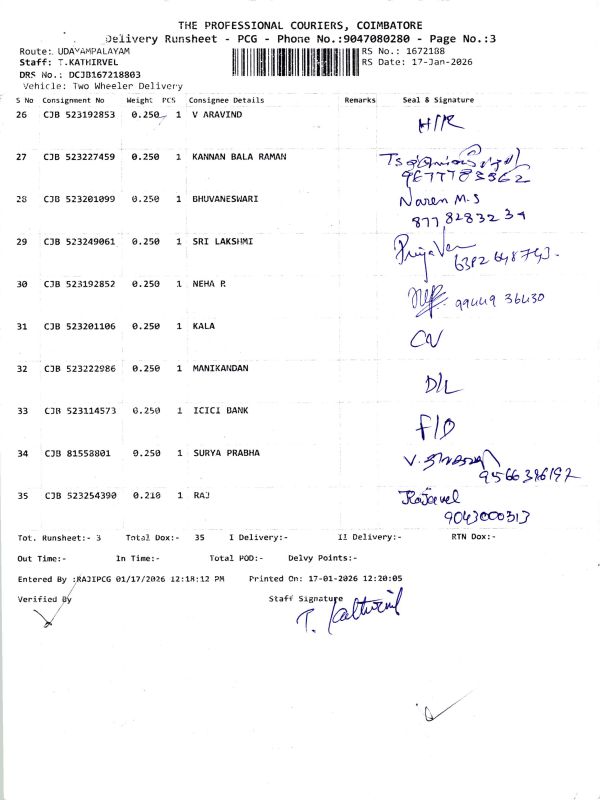 THE PROFESSIONAL COURIERS, COIMBATORE
Delivery Runsheet - PCG - Phone No.:9047080280 - Page No.:3
Route: UDAYAMPALAYAM RS No.: 1672188
Staff: T.KATHIRVEL RS Date: 17-Jan-2026
DRS No.: DCJB167218803
Vehicle: Two Wheeler Delivery
S No Consignment No Weight PCS Consignee Details Remarks Seal & Signature
26 CJB 523192853 0.250 1 V ARAVIND H/R
27 CJB 523227459 0.250 1 KANNAN BALA RAMAN
28 CJB 523201099 0.250 1 BHUVANESWARI Naren M.S
8778283234
29 CJB 523249061 0.250 1 SRI LAKSHMI
6382648743
30 CJB 523192852 0.250 1 NEHA P. 99449 36430
31 CJB 523201106 0.250 1 KALA
32 CJB 523222986 0.250 1 MANIKANDAN D/L
33 CJB 523114573 0.250 1 ICICI BANK F/D
34 CJB 81558801 0.250 1 SURYA PRABHA
9566386192
35 CJB 523254390 0.210 1 RAJ Rajavel
9043000313
Tot. Runsheet:- 3 Total Dox:- 35 I Delivery:- II Delivery:- RTN Dox:-
Out Time:- In Time:- Total POD:- Delvy Points:-
Entered By :RAJIPCG 01/17/2026 12:18:12 PM Printed On: 17-01-2026 12:20:05
Verified By Staff Signature
T. Kathirvel